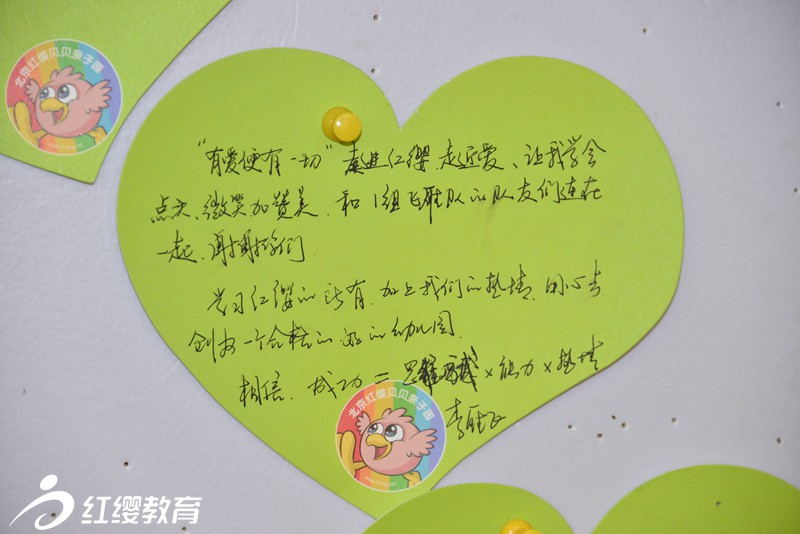 北京红缨贝贝亲子园
"有爱便有一切"走进红缨、走近爱、让我学会
点头、微笑加赞美、和1组飞雁队的队友们连在
一起、谢谢你们
学习红缨的所有、加上我们的热情、用心去
创办一个合格的 的幼儿园
相信、成功=思维 ×能力×热情
李
北京红缨贝贝亲子园
红缨教育